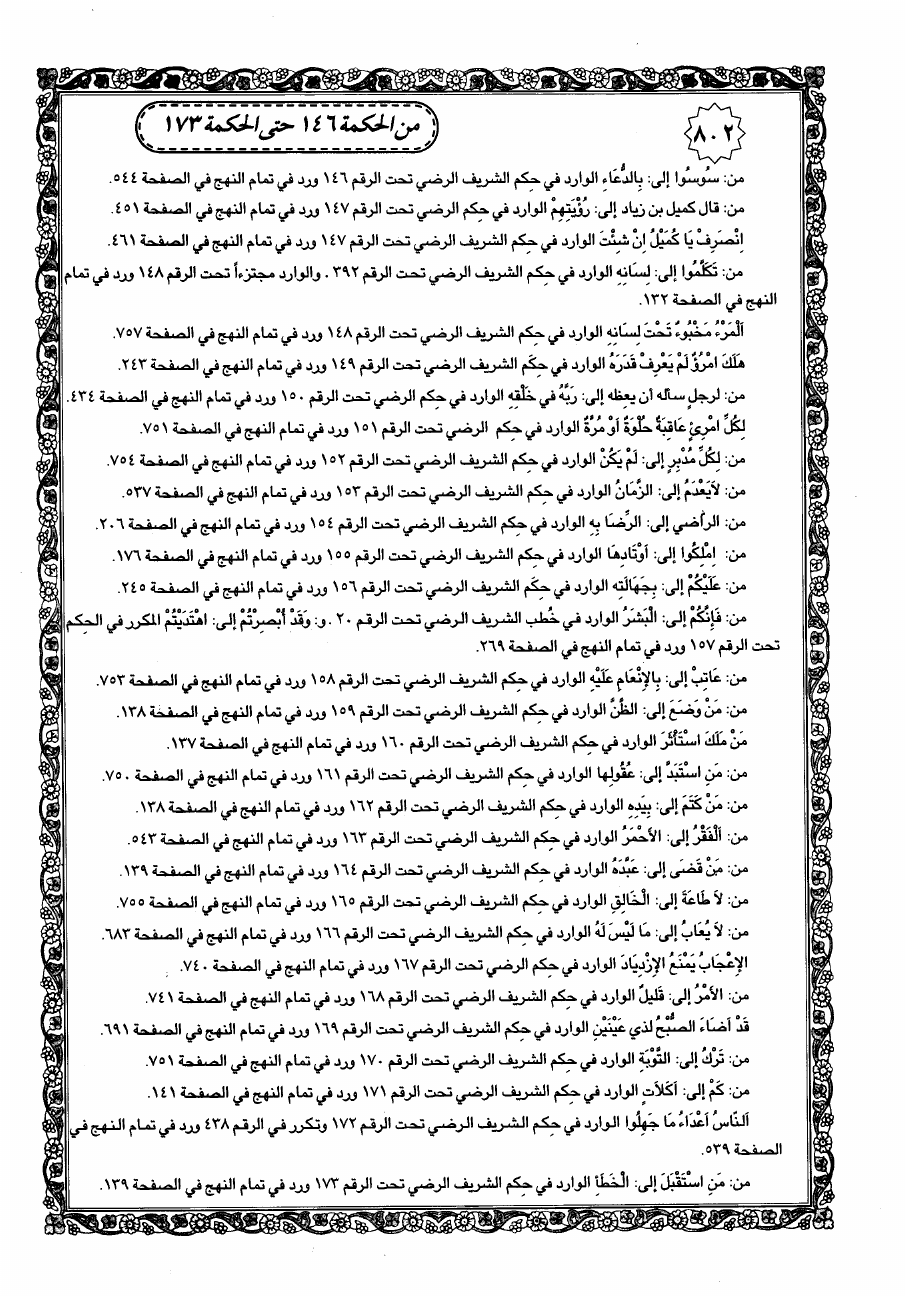 ٨٠٢
من الحكمة ١٤٦ حتى الحكمة ١٧٣
من: سُوسُوا إلى: بِالدُّعَاءِ الوارد في حكم الشريف الرضي تحت الرقم ١٤٦ ورد في تمام النهج في الصفحة ٥٤٤.
من: قال كميل بن زياد إلى: رُؤْيَتِهِمْ الوارد في حِكم الرضي تحت الرقم ١٤٧ ورد في تمام النهج في الصفحة ٤٥١.
اِنْصَرِفْ يَا كُمَيْلُ اِنْ شِئْتَ الوارد في حِكم الشريف الرضي تحت الرقم ١٤٧ ورد في تمام النهج في الصفحة ٤٦١.
من: تَكَلَّمُوا إلى: لِسَانِهِ الوارد في حِكم الشريف الرضي تحت الرقم ٣٩٢. والوارد مجتزءاً تحت الرقم ١٤٨ ورد في تمام
النهج في الصفحة ١٣٢.
اَلْمَرْءُ مَخْبُوءٌ تَحْتَ لِسَانِهِ الوارد في حِكم الشريف الرضي تحت الرقم ١٤٨ ورد في تمام النهج في الصفحة ٧٥٧.
هَلَكَ امْرُؤٌ لَمْ يَعْرِفْ قَدَرَهُ الوارد في حِكَم الشريف الرضي تحت الرقم ١٤٩ ورد في تمام النهج في الصفحة ٢٤٣.
من: لرجلٍ سأله أن يعظه إلى: رَبَّهُ في خَلْقِهِ الوارد في حكم الرضي تحت الرقم ١٥٠ ورد في تمام النهج في الصفحة ٤٣٤.
لِكُلِّ امْرِئٍ عَاقِبَةٌ حُلْوَةٌ اَوْ مُرَّةٌ الوارد في حكم الرضي تحت الرقم ١٥١ ورد في تمام النهج في الصفحة ٧٥١.
من: لِكُلِّ مُدْبِرٍ إلى: لَمْ يَكُنْ الوارد في حِكم الشريف الرضي تحت الرقم ١٥٢ ورد في تمام النهج في الصفحة ٧٥٤.
من: لاَيَعْدَمُ إلى: الزَّمَانُ الوارد في حِكم الشريف الرضي تحت الرقم ١٥٣ ورد في تمام النهج في الصفحة ٥٣٧.
من: الراضي إلى: الرِّضَا بِهِ الوارد في حِكم الشريف الرضي تحت الرقم ١٥٤ ورد في تمام النهج في الصفحة ٢٠٦.
من: اِمْلِكُوا إلى: اَوْتَادِهَا الوارد في حِكم الشريف الرضي تحت الرقم ١٥٥ ورد في تمام النهج في الصفحة ١٧٦.
من: عَلَيْكُمْ إلى: بِجَهَالَتِهِ الوارد في حِكَم الشريف الرضي تحت الرقم ١٥٦ ورد في تمام النهج في الصفحة ٢٤٥.
من: فَاِنَّكُمْ إلى: الْبَشَرَ الوارد في خُطب الشريف الرضي تحت الرقم ٢٠. و: وَقَدْ اُبْصِرْتُمْ إلى: اهْتَدَيْتُمْ المكرر في الحكم
تحت الرقم ١٥٧ ورد في تمام النهج في الصفحة ٢٦٩.
من: عَاتِبْ إلى: بِالاِنْعَامِ عَلَيْهِ الوارد في حِكم الشريف الرضي تحت الرقم ١٥٨ ورد في تمام النهج في الصفحة ٧٥٣.
من: مَنْ وَضَعَ إلى: الظَّنَّ الوارد في حِكم الشريف الرضي تحت الرقم ١٥٩ ورد في تمام النهج في الصفحة ١٣٨.
مَنْ مَلَكَ اسْتَأْثَرَ الوارد في حِكم الشريف الرضي تحت الرقم ١٦٠ ورد في تمام النهج في الصفحة ١٣٧.
من: مَنِ اسْتَبَدَّ إلى: عُقُولِها الوارد في حِكم الشريف الرضي تحت الرقم ١٦١ ورد في تمام النهج في الصفحة ٧٥٠.
من: مَنْ كَتَمَ إلى: بِيَدِهِ الوارد في حِكم الشريف الرضي تحت الرقم ١٦٢ ورد في تمام النهج في الصفحة ١٣٨.
من: اَلْفَقْرُ إلى: الاَحْمَرُ الوارد في حِكم الشريف الرضي تحت الرقم ١٦٣ ورد في تمام النهج في الصفحة ٥٤٣.
من: مَنْ قَضَى إلى: عَبَّدَهُ الوارد في حِكم الشريف الرضي تحت الرقم ١٦٤ ورد في تمام النهج في الصفحة ١٣٩.
من: لاَ طَاعَةَ إلى: الْخَالِقِ الوارد في حِكم الشريف الرضي تحت الرقم ١٦٥ ورد في تمام النهج في الصفحة ٧٥٥.
من: لاَ يُعَابُ إلى: مَا لَيْسَ لَهُ الوارد في حِكم الشريف الرضي تحت الرقم ١٦٦ ورد في تمام النهج في الصفحة ٦٨٣.
الاِعْجَابُ يَمْنَعُ الاِزْدِيَادَ الوارد في حِكم الرضي تحت الرقم ١٦٧ ورد في تمام النهج في الصفحة ٧٤٠.
من: الاَمْرُ إلى: قَلِيلٌ الوارد في حِكم الشريف الرضي تحت الرقم ١٦٨ ورد في تمام النهج في الصفحة ٧٤١.
قَدْ اَضَاءَ الصُّبْحُ لذي عَيْنَيْنِ الوارد في حِكم الشريف الرضي تحت الرقم ١٦٩ ورد في تمام النهج في الصفحة ٦٩١.
من: تَرْكُ إلى: التَّوْبَةِ الوارد في حِكم الشريف الرضي تحت الرقم ١٧٠ ورد في تمام النهج في الصفحة ٧٥١.
من: كَمْ إلى: اَكَلاَتٍ الوارد في حِكم الشريف الرضي تحت الرقم ١٧١ ورد في تمام النهج في الصفحة ١٤١.
اَلنَّاسُ اَعْدَاءُ مَا جَهِلُوا الوارد في حِكم الشريف الرضي تحت الرقم ١٧٢ وتكرر في الرقم ٤٣٨ ورد في تمام النهج في
الصفحة ٥٣٩.
من: مَنِ اسْتَقْبَلَ إلى: الْخَطَأِ الوارد في حِكم الشريف الرضي تحت الرقم ١٧٣ ورد في تمام النهج في الصفحة ١٣٩.